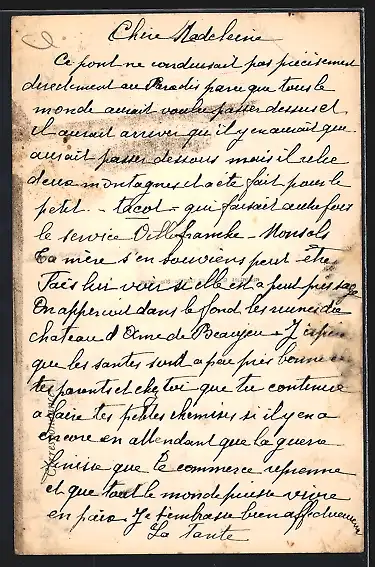 Chère Madeleine
Ce pont ne conduisait pas précisément
directement au Paradis parce que tous le
monde aurait voulu passer dessus et
il aurait arriver qu'il y en aurait que
aurait passer dessous mais il relie
deux montagnes et a été fait pour le
petit - tacot - qui faisait autre fois
le service Villefranche - Monsols
Ta mère s'en souviens peut-être
Fais lui voir si elle est a peut près sage
On apperçoit dans le fond les ruines du
chateau d'Aine de Beaujeu - J'espère
que les santes sont a peu près bonne
tes parents et chez toi que tu continue
a faire tes petites chemises si il y en a
encore en attendant que la guerre
finisse que le commerce reprenne
et que tout le monde puisse vivre
en paix. Je t'embrasse bien affectueusement
Ta Tante
Correspondance